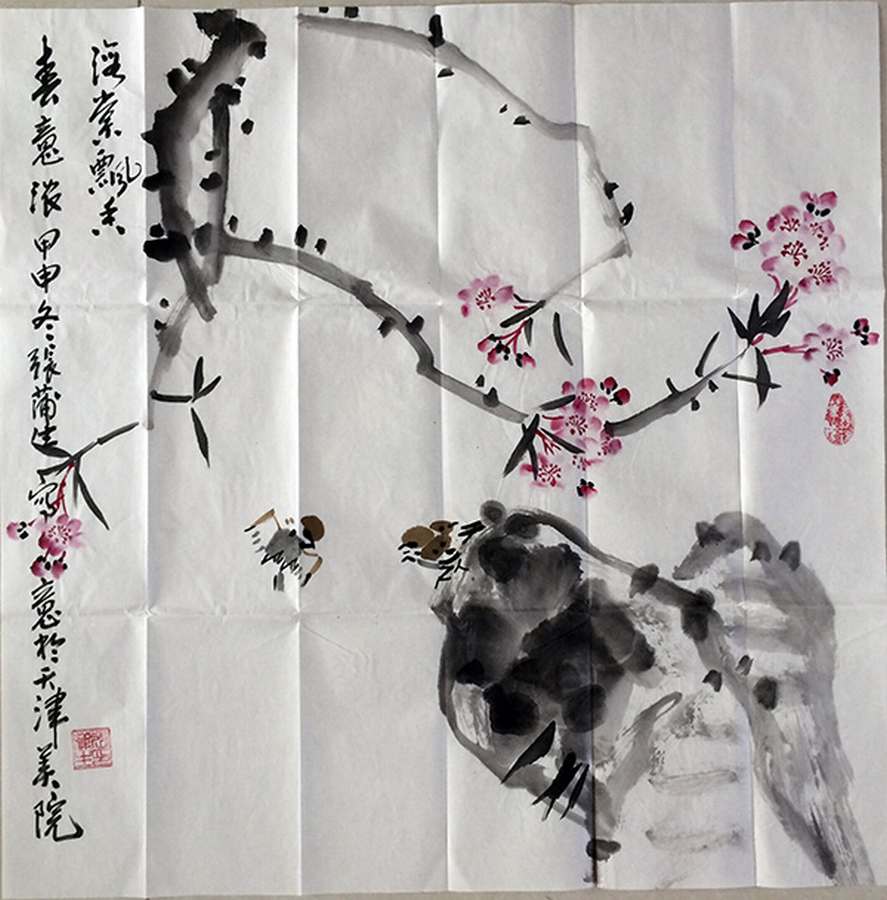 海棠飘香
春意浓甲申冬張蒲生寫意於天津美院